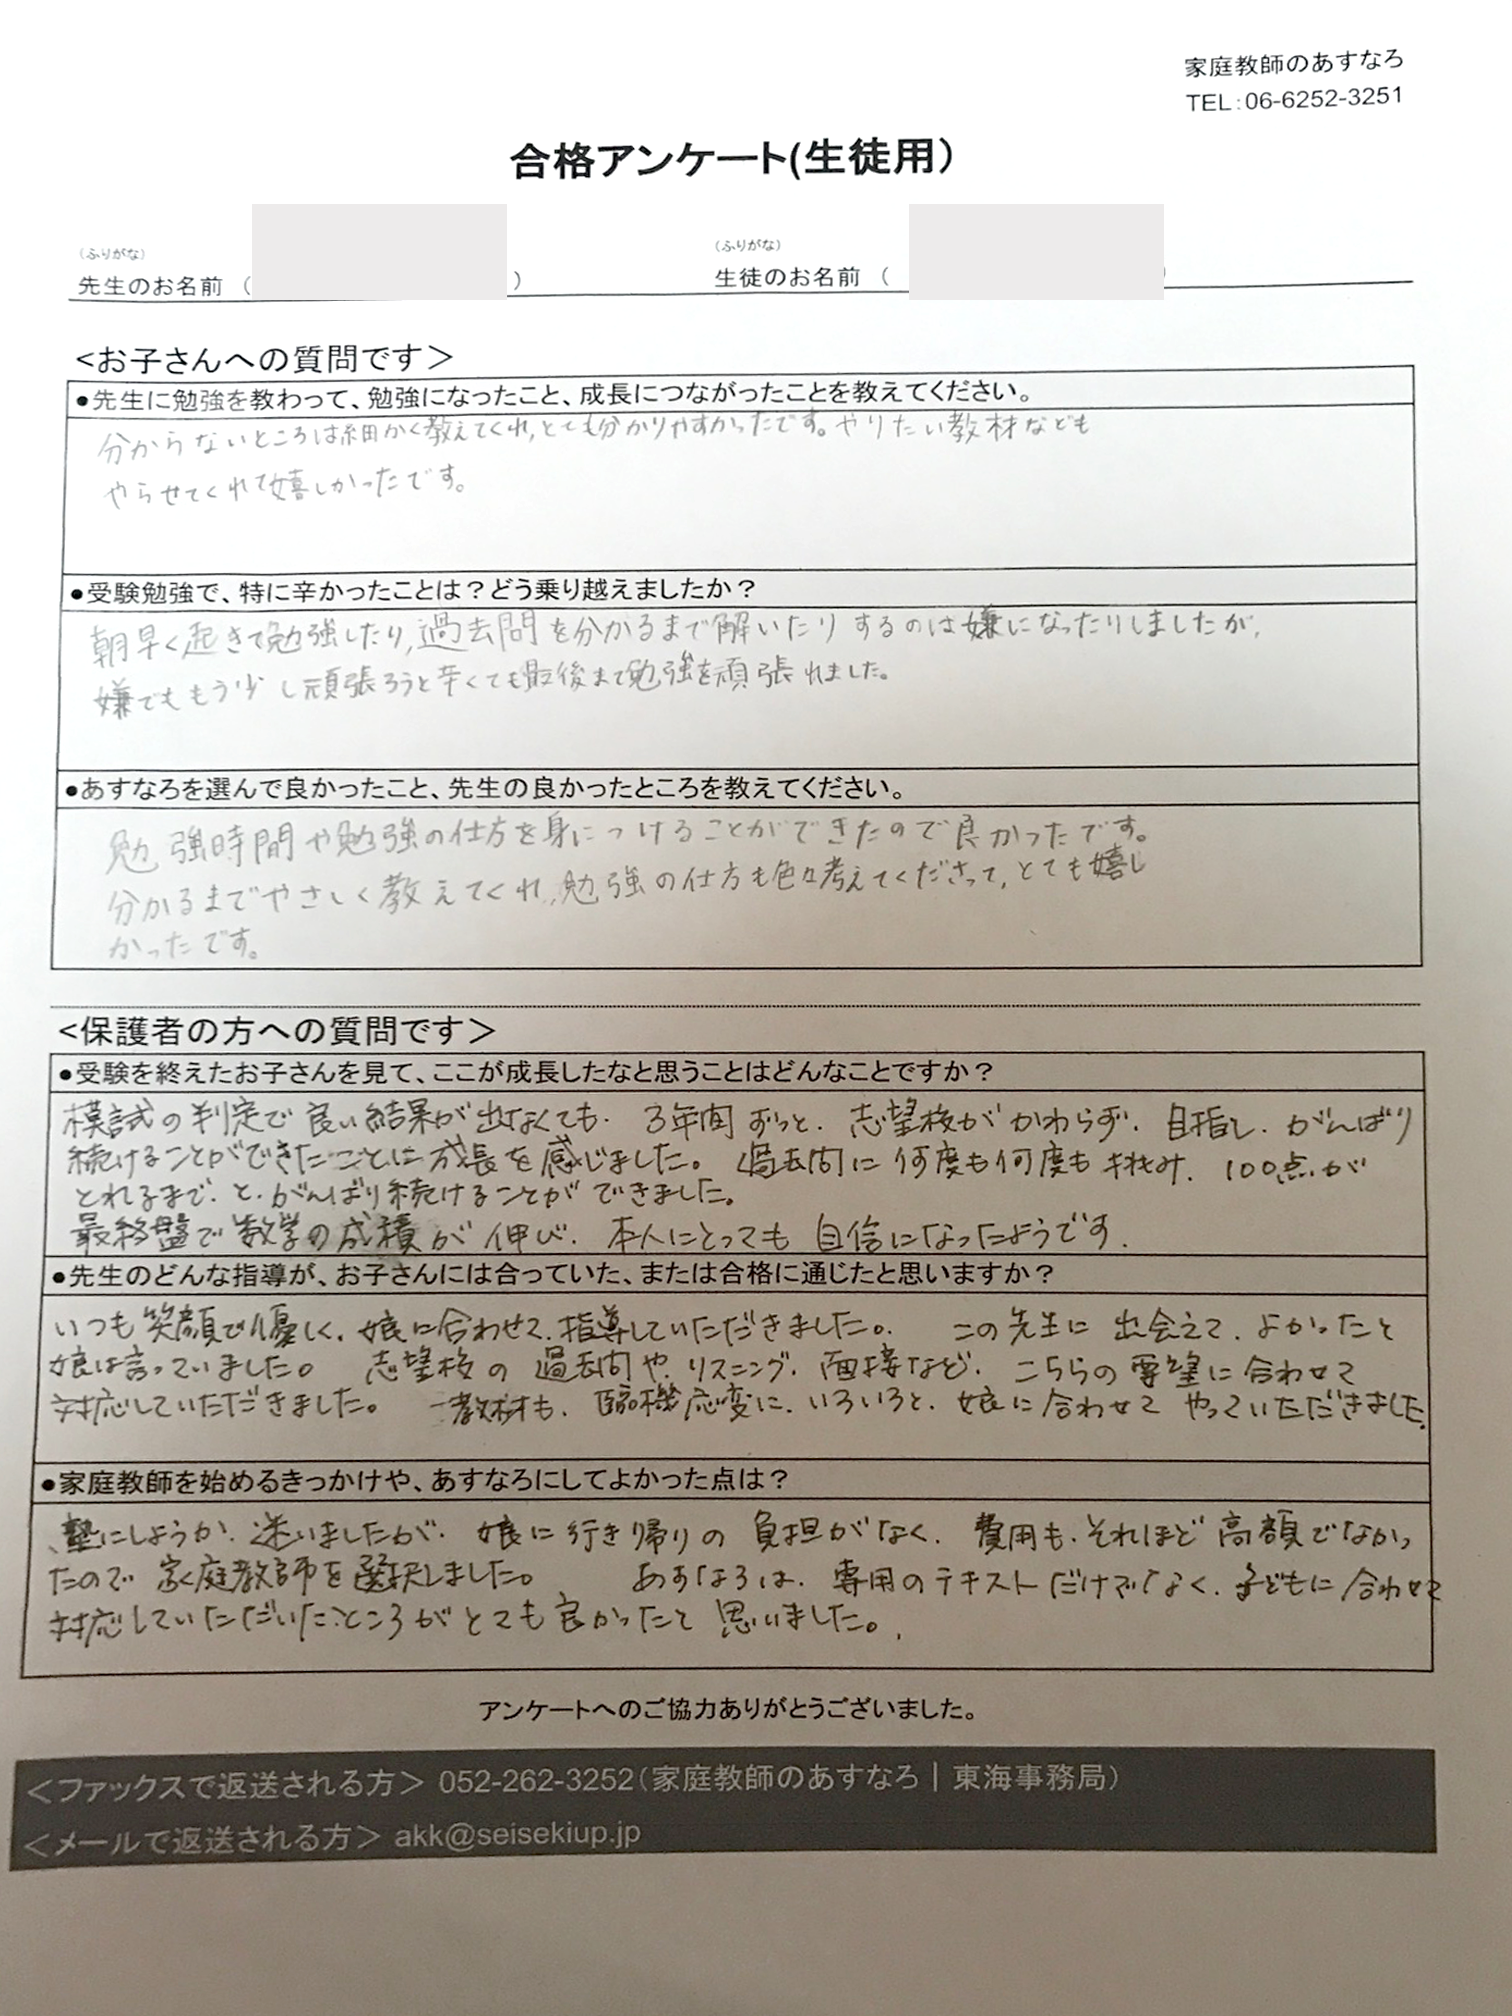 家庭教師のあすなろ
TEL:06-6252-3251
合格アンケート(生徒用)
(ふりがな)
先生のお名前 ( )
(ふりがな)
生徒のお名前 ( )
<お子さんへの質問です>
●先生に勉強を教わって、勉強になったこと、成長につながったことを教えてください。
分からないところは細かく教えてくれ、とても分かりやすかったです。やりたい教材なども
やらせてくれて嬉しかったです。
●受験勉強で、特に辛かったことは？どう乗り越えましたか？
朝早く起きて勉強したり、過去問を分かるまで解いたりするのは嫌になったりしましたが、
嫌でももう少し頑張ろうと辛くても最後まで勉強を頑張れました。
●あすなろを選んで良かったこと、先生の良かったところを教えてください。
勉強時間や勉強の仕方を身につけることができたので良かったです。
分かるまでやさしく教えてくれ、勉強の仕方も色々考えてくださって、とても嬉し
かったです。
<保護者の方への質問です>
●受験を終えたお子さんを見て、ここが成長したなと思うことはどんなことですか？
模試の判定で良い結果が出なくても、3年間ずっと、志望校がかわらず、目指し、がんばり
続けることができたことに成長を感じました。過去問に何度も何度も挑み、100点が
とれるまで、と、がんばり続けることができました。
最終盤で数学の成績が伸び、本人にとっても自信になったようです.
●先生のどんな指導が、お子さんには合っていた、または合格に通じたと思いますか？
いつも笑顔で優しく、娘に合わせて、指導していただきました。この先生に出会えて、よかったと
娘は言っていました。志望校の過去問や、リスニング、面接など、こちらの要望に合わせて
対応していただきました。教材も、臨機応変に、いろいろと、娘に合わせてやっていただきました.
●家庭教師を始めるきっかけや、あすなろにしてよかった点は？
塾にしようか、迷いましたが、娘に行き帰りの負担がなく、費用も、それほど高額でなかっ
たので家庭教師を選択しました。あすなろは、専用のテキストだけでなく、子どもに合わせて
対応していただいたところがとても良かったと思いました。
アンケートへのご協力ありがとうございました。
<ファックスで返送される方> 052-262-3252(家庭教師のあすなろ｜東海事務局)
<メールで返送される方> akk@seisekiup.jp